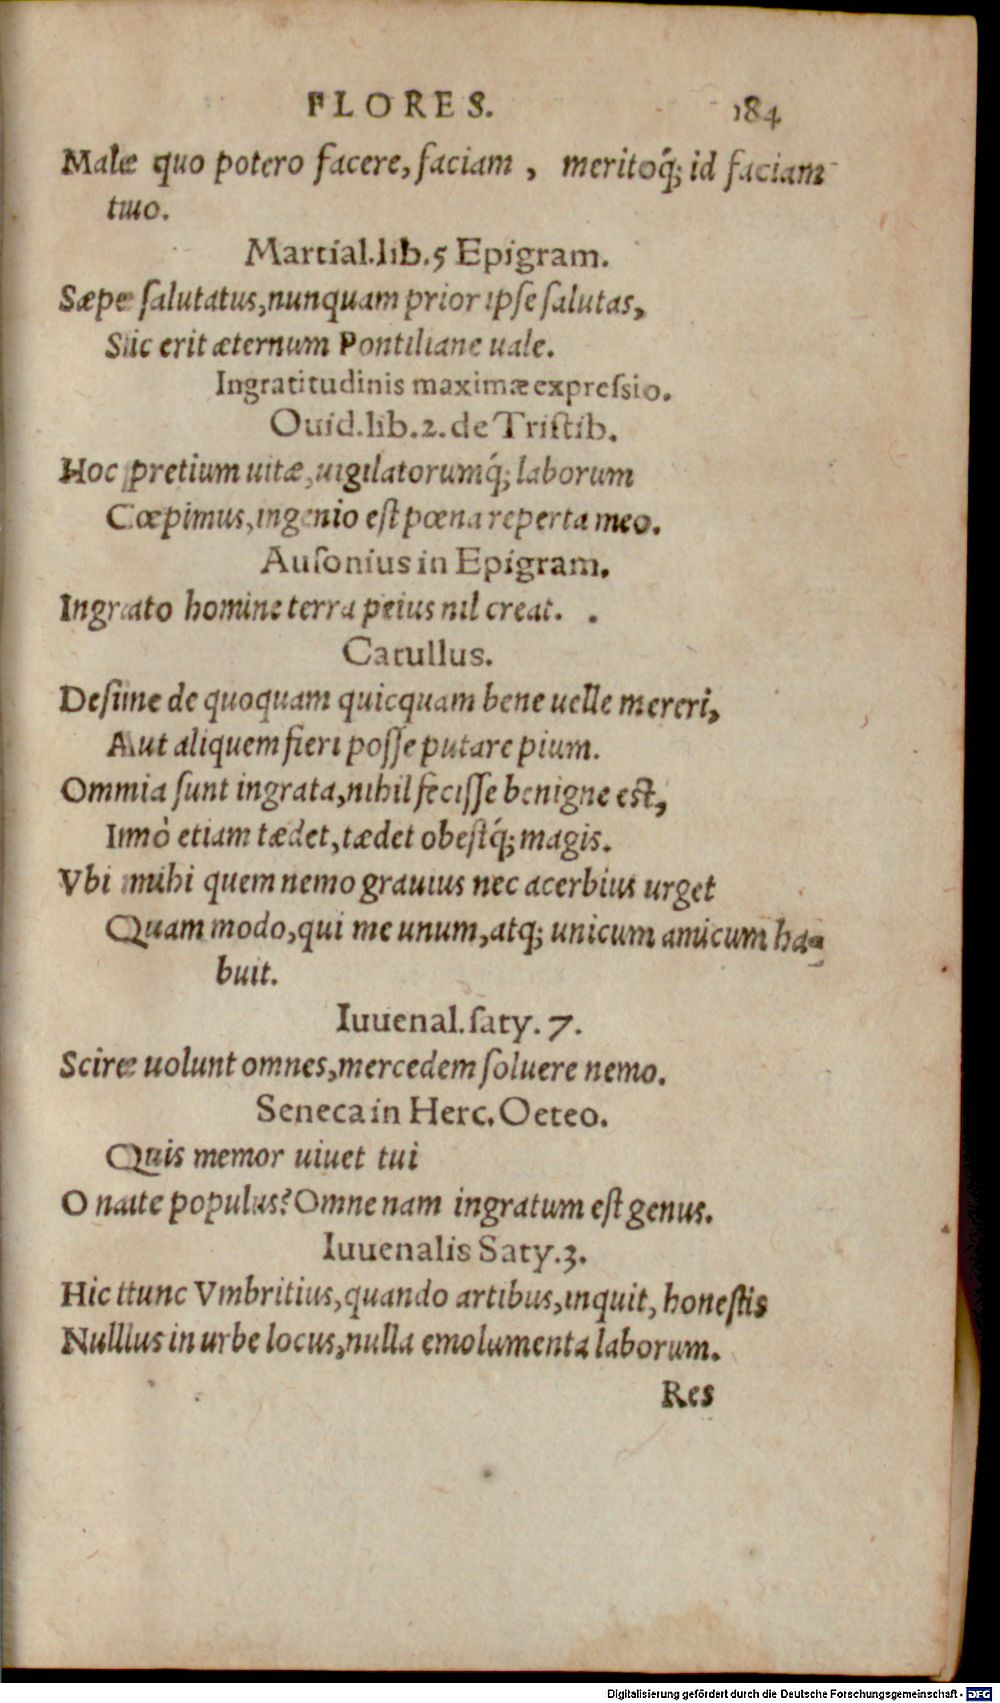 FLORES. 184
Male quo potero facere, faciam, meritoq́; id faciam
tuo.
Martial.lib.5 Epigram.
Sæpe salutatus, nunquam prior ipse salutas,
Sic erit æternum Pontiliane uale.
Ingratitudinis maximæ expressio.
Ouid.lib.2.de Tristib.
Hoc pretium uitæ, uigilatorumq́; laborum
Cœpimus, ingenio est pœna reperta meo.
Ausonius in Epigram.
Ingrato homine terra peius nil creat.
Catullus.
Desine de quoquam quicquam bene uelle mereri,
Aut aliquem fieri posse putare pium.
Omnia sunt ingrata, nihil fecisse benigne est,
Immò etiam tædet, tædet obestq́; magis.
Vbi mihi quem nemo grauius nec acerbius urget
Quam modo, qui me unum, atq; unicum amicum ha-
buit.
Iuuenal.saty. 7.
Scire uolunt omnes, mercedem soluere nemo.
Seneca in Herc. Oeteo.
Quis memor uiuet tui
O nate populus? Omne nam ingratum est genus.
Iuuenalis Saty.3.
Hic tunc Vmbritius, quando artibus, inquit, honestis
Nullus in urbe locus, nulla emolumenta laborum.
Res
Digitalisierung gefördert durch die Deutsche Forschungsgemeinschaft - DFG